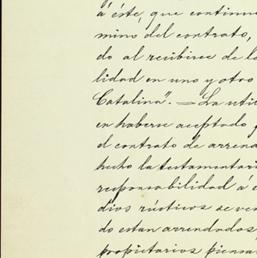 á éste, que continu
mino del contrato,
do al recibirse de la
lidad en uno y otro
Catalina". — La uti
en haberse aceptado
el contrato de arrend
hecho la testamentari
responsabilidad á
dios rústicos se ven
do estan arrendados,
propietarios piensa